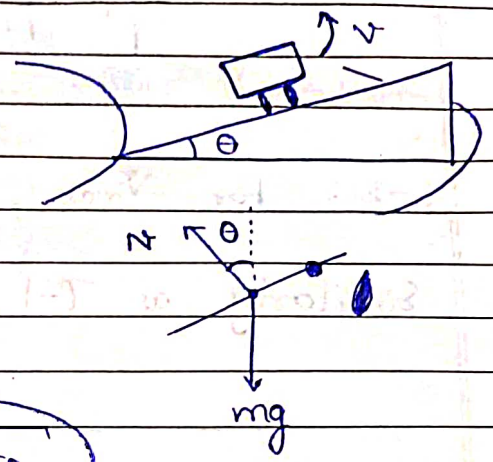 v
θ
N θ
mg